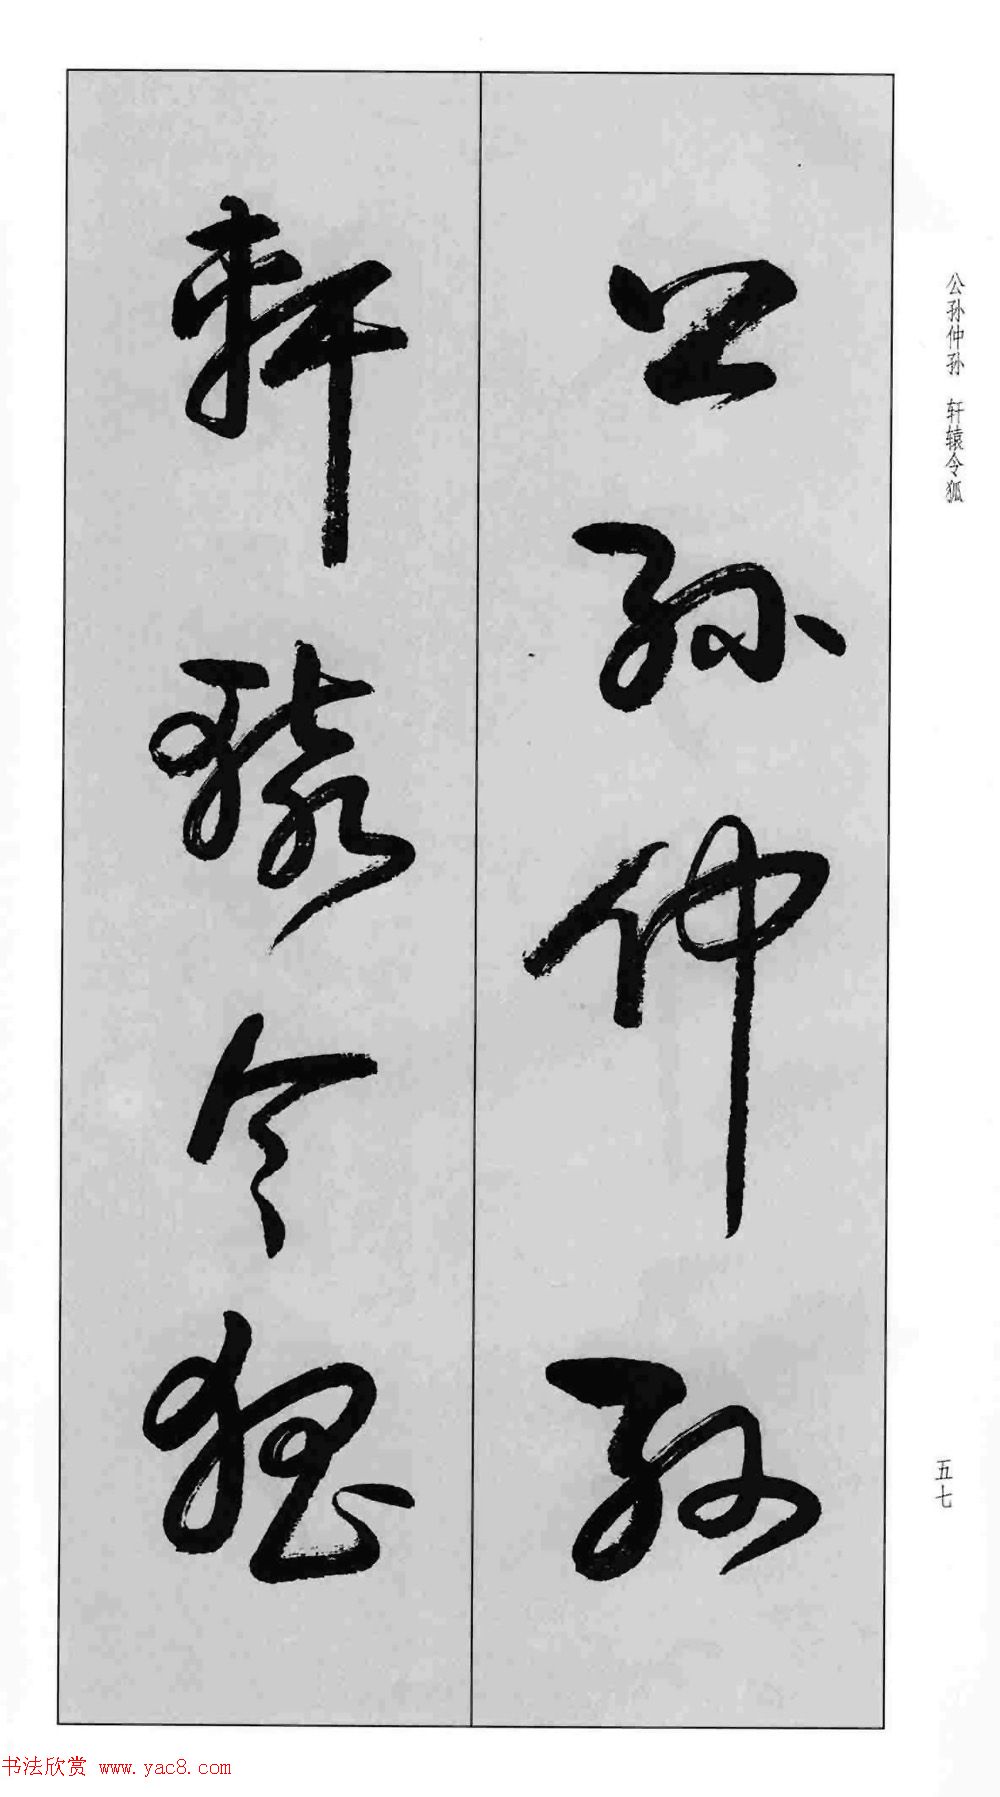 公孫仲孫
軒轅令狐
公孙仲孙 轩辕令狐
五七
书法欣赏 www.yac8.com